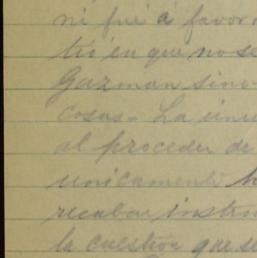 ni fué á favor
tió en que no se
Guzman sino
cosas - La únic
al proceder de
unicamente h
recabar instru
la cuestion que se